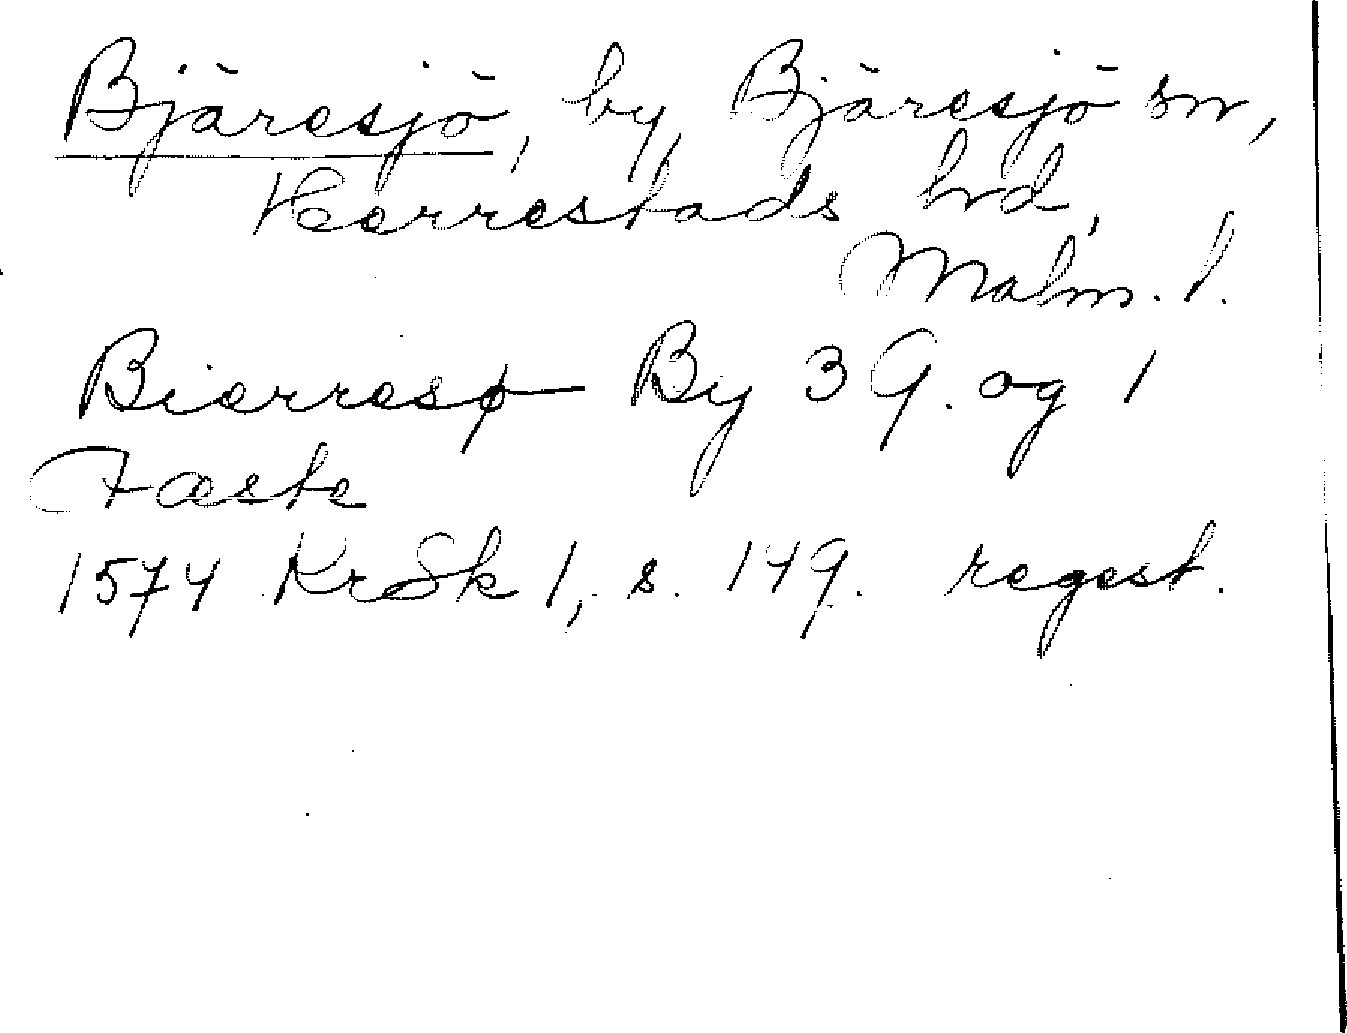 Bjäresjö, by, Bjäresjö sn,
Herrestads hd,
Malm. l.
Bierresø By 3 G. og 1
Fæste
1574 KrSk 1, s. 149. regest.